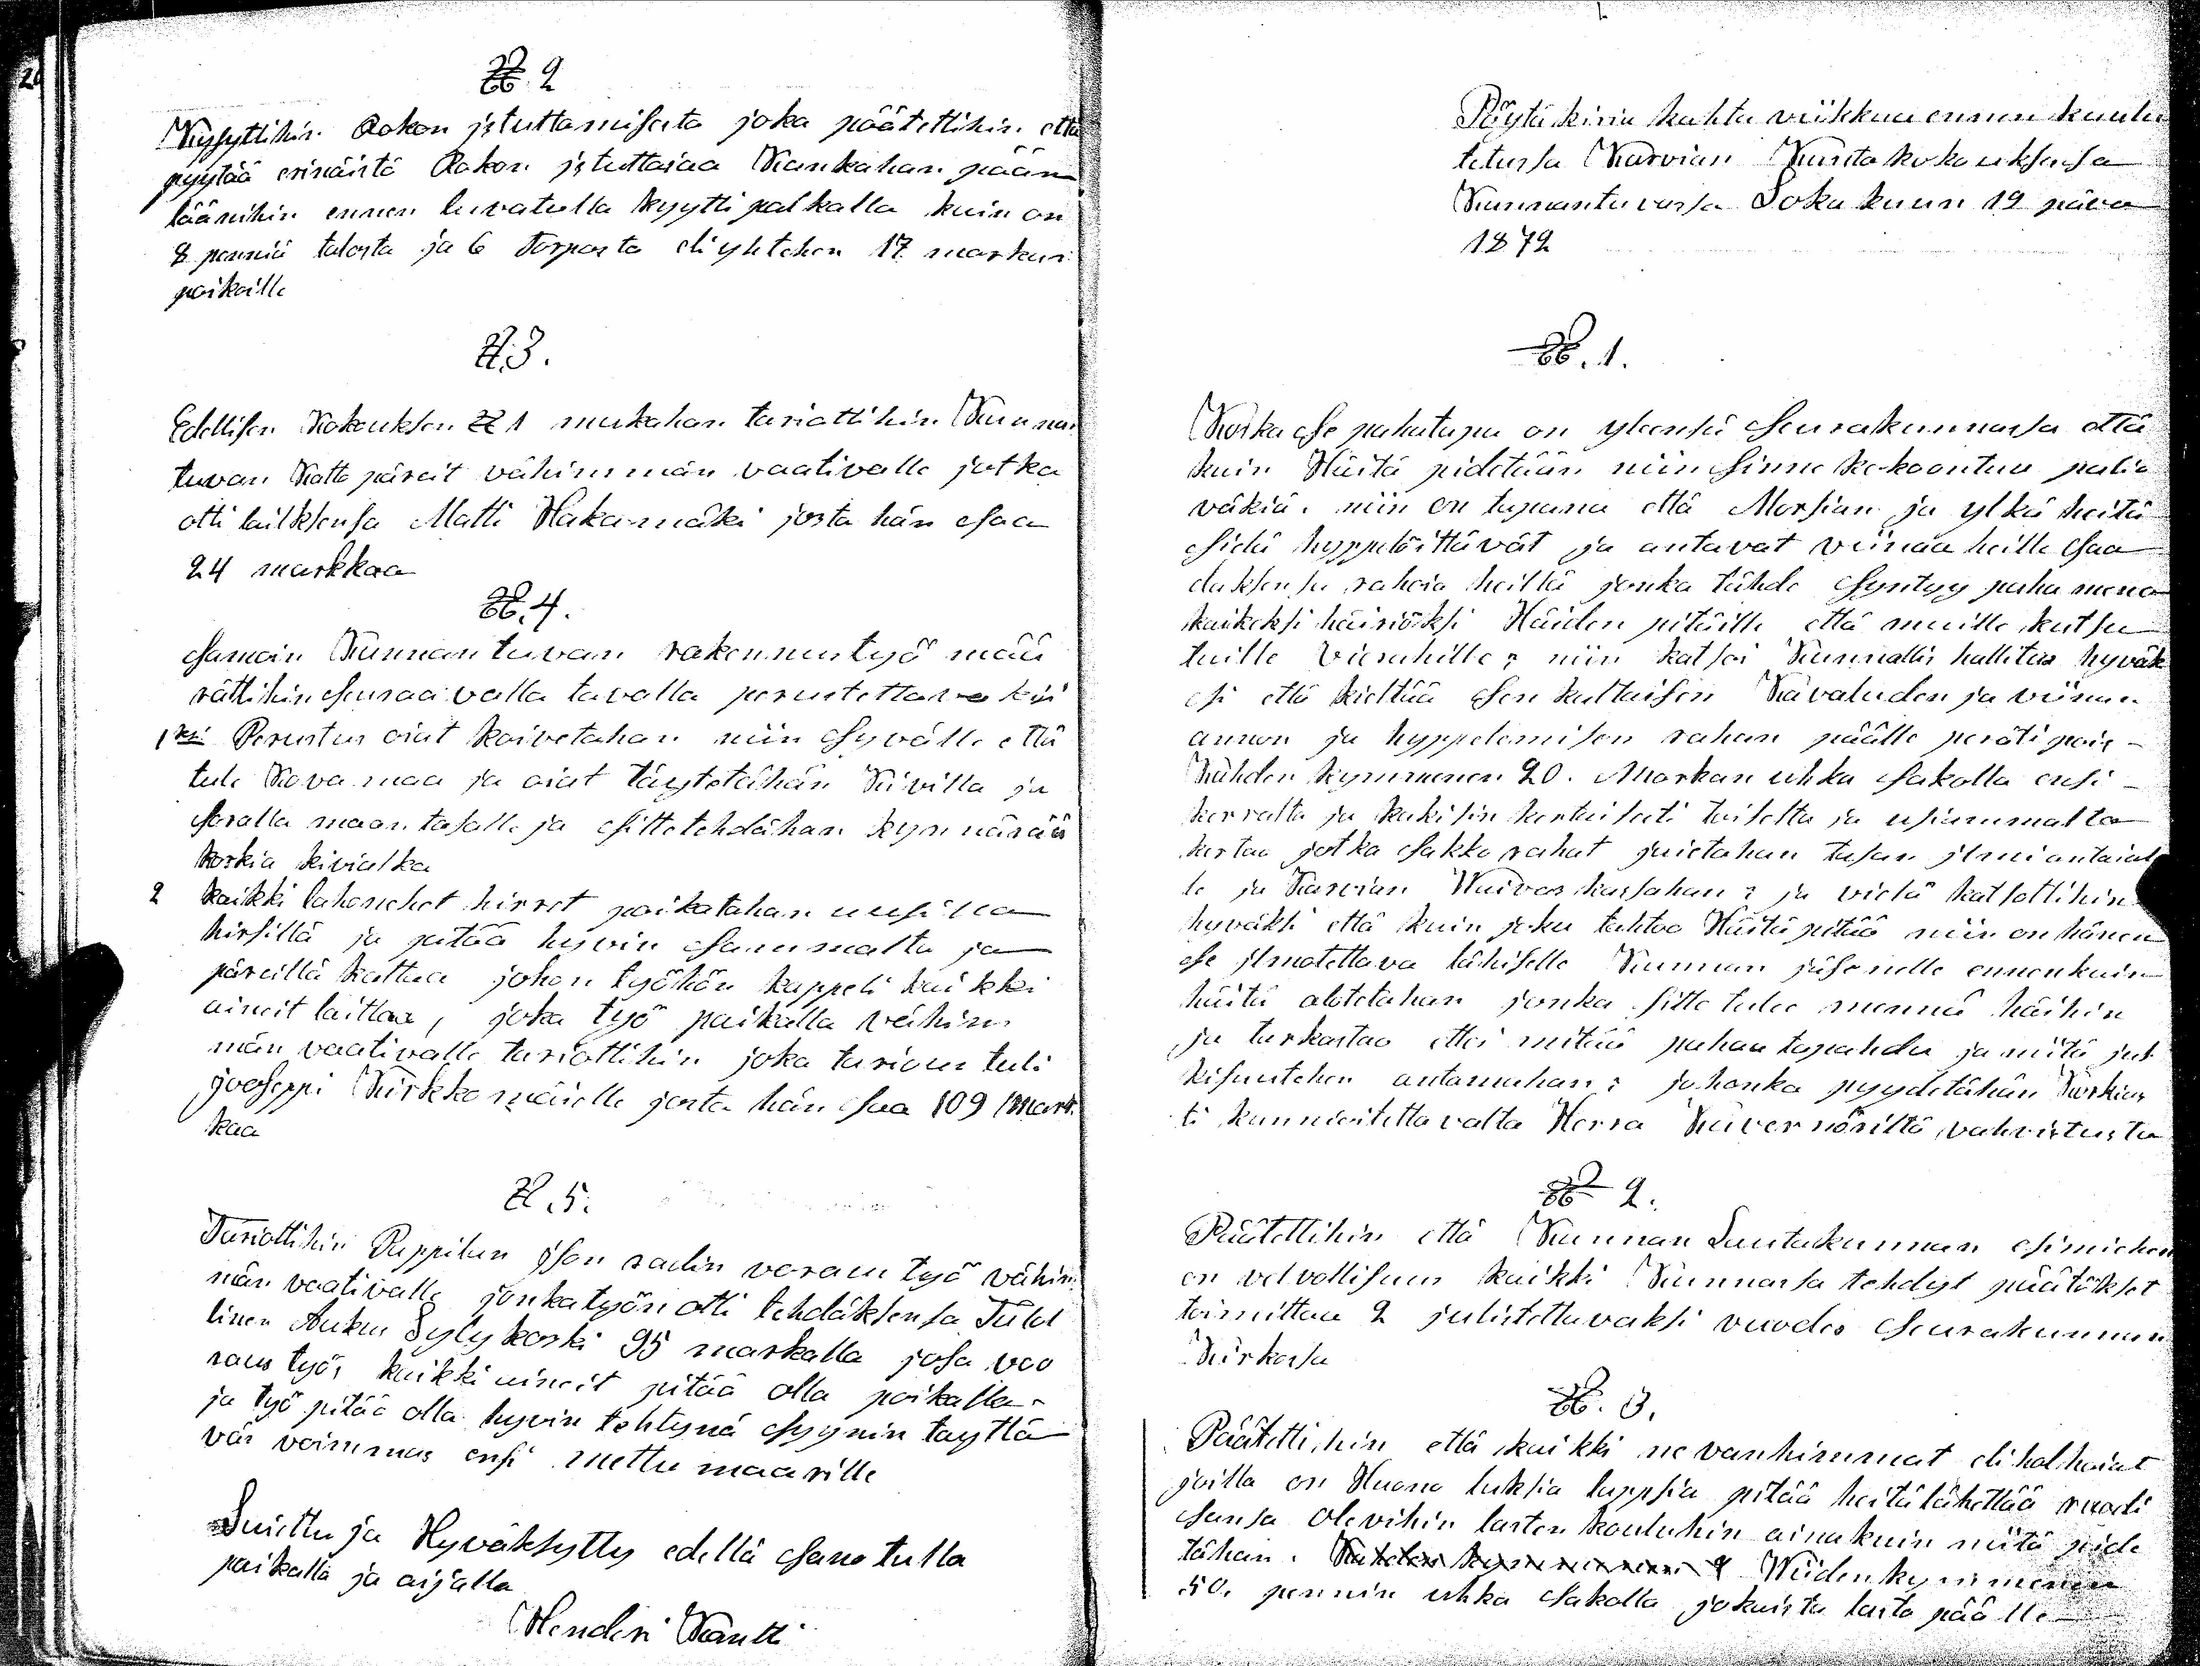 § 2
Kysyttihin Rokon istuttamisesta joka päätettihin että
pyytää erinäistä Rokon istuttajaa Kankahan pään
läänihin ennen luvatulla kyytti palkalla kuin on
8 penniä talosta ja 6 torpasta eli yhtehen 17 markan
paikoille
§ 3.
Edellisen Kokouksen § 1 mukahan tariottihin Kunnan
tuvan Katto päreit vähimmän vaativalle jotka
otti laitksensa Matti Hakamäki josta hän saa
24 markkaa
§. 4.
Samoin Kunnan tuvan rakennustyö mää
rättihin Seuraavalla tavalla perustettava
1ksi Perustus ojat kaivetahan niin Syvälle että
tule Kova maa ja ojat täytetähän Kivillä ja
Soralla maan tasalle ja Sitte tehdähän kynnärää
korkia kivialka
2 kaikki lahonehet hirret paikatahan uusilla
hirsillä ja pitää hyvin Sammalta ja
päreillä kattaa johon työhön kappeli kaikki
aineit laittaa, joka työ paikalla vähim
män vaativalle tariottihin joka tarious tuli
jooseppi Kirkkomäielle josta hän saa 109 mark
kaa
§. 5.
Tariottihin Pappilan ison radin voraus työ vähim
män vaativalle jonka työn otti tehdäksensä Tilal
linen Aukus Sylykoski 95 markalla josa voo
raus työs kaikki aineit pitää olla paikalla
ja työ pitää olla hyvin tehtynä Syynin täyttä
väs voimmas ensi mettumaarille
Luittu ja Hyväksytty edellä Sanotulla
paikalla ja aijalla
Henderi Kantti
Pöytäkiria kahta viikkua ennen kuulu
tetussa Karvian Kuntakokouksessa
Kunnantuvassa Lokakuun 19 päivä
1872
§. 1.
Koska Se pahatapa on yleensä Seurakunnassa että
kuin Häitä pidetään niin Sinne kokoontuu palio
väkiä. niin on tapana että Morsian ja ylkä heitä
Sielä hyppelöittävät ja antavat viinaa heille Saa
duksensa rahoia heiltä jonka tähde Syntyy paha meno
kaikeksi häiriöksi Häiden pitäille että muille kutsu
tuille Vierahille; niin katsoi Kunnallis hallitus hyväk
si että kieltää Sen kaltaisen Tavaluden ja viinan
annon ja hyppelemisen rahan päälle peräti pois -
Kahden kymmenen 20. Markan uhka Sakolla ensi -
kerralta ja kakisin kertaisesti toiselta ja usiammalta
kertaa jotka Sakko rahat jaetahan tasan ilmiantaial
le ja Karvian Waivas kassahan; ja vielä katsottihin
hyväksi että kuin joku tahtoo Häitä pitää niin on hänen
Se ilmotettava lähiselle Kunnan jäsenelle ennenkuin
häitä alotetahan jonka Sitte tulee mennä häihin
ja tarkastaa ettei mitää pahaa tapahdu ja niitä jul
kisuutehen antamahan; johonka pyydetähän Korkias
ti kunnioitettavalta Herra Kuvernöriltä vahvistusta
§ 2.
Päätettihin että Kunnan Lautakunnan Esimiehen
on velvollisuus kaikki Kunnassa tehdyt päätökset
toimittaa 2 julistettavaksi vuodes Seurakunnan
Kirkossa
§. 3.
Päätettihin että kaikki ne vanhimmat eli holhoiat
joilla on Huono luksia lappsia pitää heitä lähettää ruodi
Sansa olevihin lasten kouluhin aina kuin niitä pide
tähän. Kahden kymmenen Wiidenkymmenen
50. pennin uhka Sakolla jokaista lasta päälle